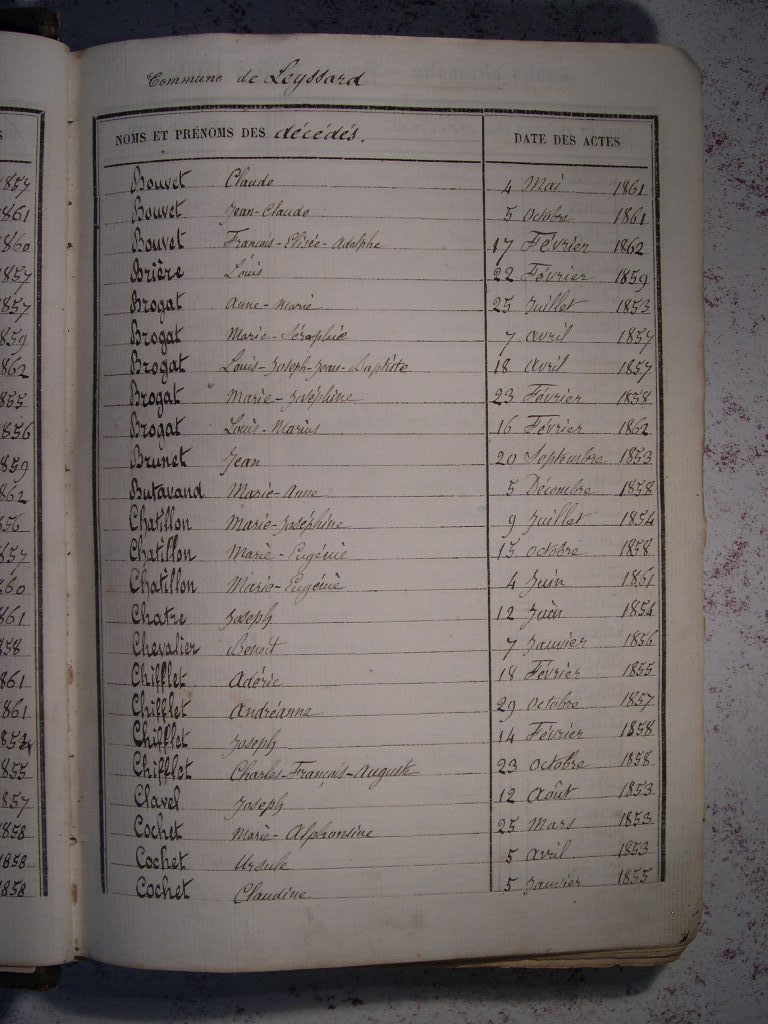 Commune de Leyssard
NOMS ET PRÉNOMS DES décédés. DATE DES ACTES
Bouvet Claude 4 Mai 1861
Bouvet Jean-Claude 5 Octobre 1861
Bouvet Français-Elisée-Adolphe 17 Février 1862
Brière Louis 22 Février 1859
Brogat Anne-Marie 25 Juillet 1853
Brogat Marie-Séraphie 7 avril 1857
Brogat Louis-Joseph-Jean-Baptiste 18 avril 1857
Brogat Marie-Joséphine 23 Février 1858
Brogat Louis-Marius 16 Février 1862
Brunet Jean 20 Septembre 1853
Butavand Marie-Anne 5 Décembre 1858
Chatillon Marie-Joséphine 9 Juillet 1854
Chatillon Marie-Eugénie 15 octobre 1858
Chatillon Marie-Eugénie 4 Juin 1861
Chatre Joseph 12 Juin 1854
Chevalier Benoit 7 Janvier 1856
Chifflet Adéric 18 Février 1855
Chifflet Andréanne 29 octobre 1857
Chifflet Joseph 14 Février 1858
Chifflet Charles-Français-Auguste 23 octobre 1858
Clavel Joseph 12 Août 1853
Cochet Marie-Alphonsine 25 Mars 1853
Cochet Ursule 5 avril 1853
Cochet Claudine 5 Janvier 1855